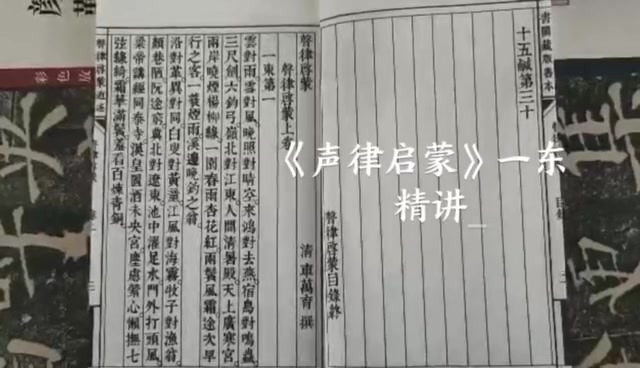 《声律启蒙》一东
精讲_
十五鹹第三十
聲律啓蒙目錄終
目錄
二
聲律啓蒙
聲律啓蒙上卷
清 車萬育 撰
一東第一
雲對雨雪對風晚照對晴空來鴻對去燕宿鳥對鳴蟲
三尺劍六鈞弓嶺北對江東人間清暑殿天上廣寒宮
兩岸曉煙楊柳綠一園春雨杏花紅兩鬢風霜途次早
行之客一蓑煙雨溪邊晚釣之翁
沿對革異對同白叟對黃童江風對海霧牧子對漁翁
顏巷陋阮途窮冀北對遼東池中濯足水門外打頭風
梁帝講經同泰寺漢皇置酒未央宮塵慮縈心懶撫七
弦綠綺霜華滿鬢羞看百煉青銅
彩色放